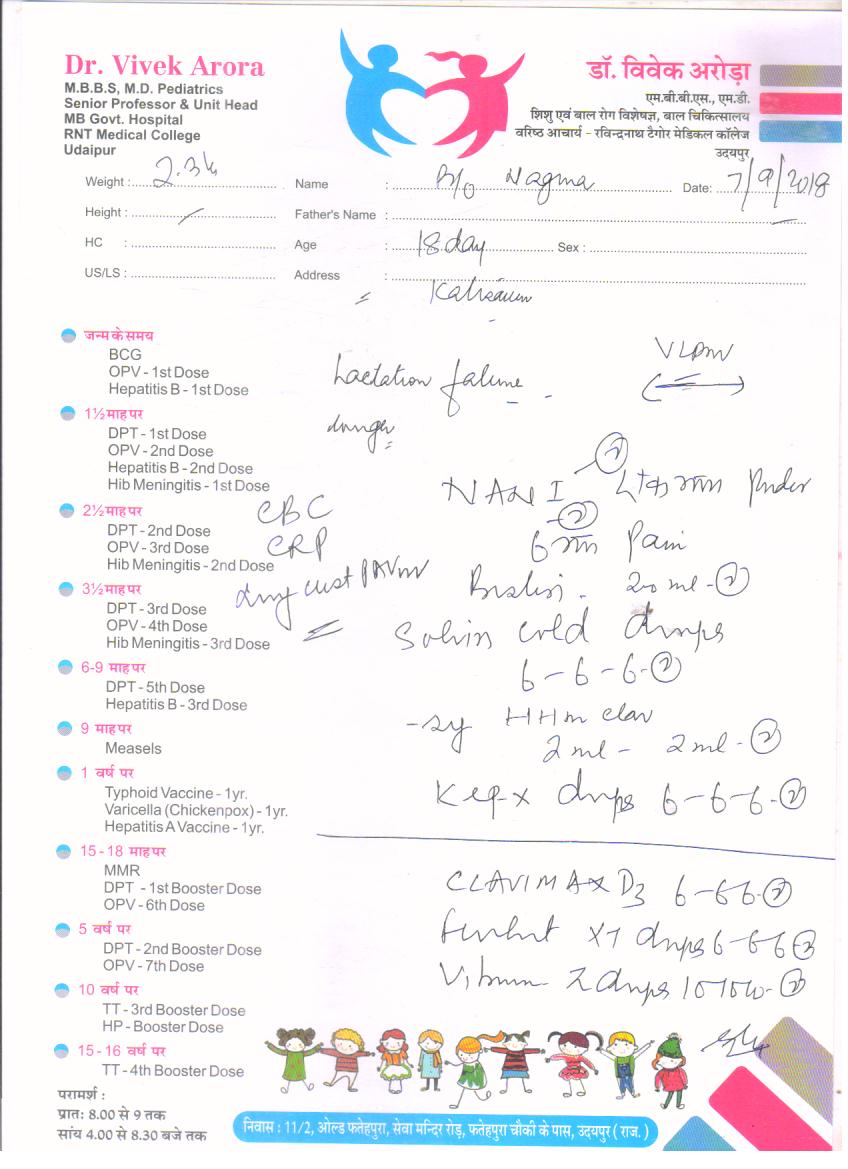 Dr. Vivek Arora
M.B.B.S, M.D. Pediatrics
Senior Professor & Unit Head
MB Govt. Hospital
RNT Medical College
Udaipur
डॉ. विवेक अरोड़ा
एम.बी.बी.एस., एम.डी.
शिशु एवं बाल रोग विशेषज्ञ, बाल चिकित्सालय
वरिष्ठ आचार्य - रविन्द्रनाथ टैगोर मेडिकल कॉलेज
उदयपुर
Weight : 2.3 Name : B/o Nagma Date: 7/9/2018
Height : Father's Name :
HC : Age : 18 day Sex :
US/LS : Address :
जन्म के समय
BCG
OPV - 1st Dose
Hepatitis B - 1st Dose
Lactation failure
1½ माह पर
DPT - 1st Dose
OPV - 2nd Dose
Hepatitis B - 2nd Dose
Hib Meningitis - 1st Dose
NAN I
2½ माह पर
DPT - 2nd Dose
OPV - 3rd Dose
Hib Meningitis - 2nd Dose
CBC
CRP
3½ माह पर
DPT - 3rd Dose
OPV - 4th Dose
Hib Meningitis - 3rd Dose
20 ml -
Solvin cold drops
6 - 6 - 6 -
6-9 माह पर
DPT - 5th Dose
Hepatitis B - 3rd Dose
- sy HHm clav
2 ml - 2 ml -
9 माह पर
Measels
1 वर्ष पर
Typhoid Vaccine - 1yr.
Varicella (Chickenpox) - 1yr.
Hepatitis A Vaccine - 1yr.
drops 6 - 6 - 6 -
15 - 18 माह पर
MMR
DPT - 1st Booster Dose
OPV - 6th Dose
CLAVIMAX D3 6 - 6 6 -
5 वर्ष पर
DPT - 2nd Booster Dose
OPV - 7th Dose
XT drops 6 - 6 6
Z drops
10 वर्ष पर
TT - 3rd Booster Dose
HP - Booster Dose
15 - 16 वर्ष पर
TT - 4th Booster Dose
परामर्श :
प्रातः 8.00 से 9 तक
सांय 4.00 से 8.30 बजे तक
निवास : 11/2, ओल्ड फतेहपुरा, सेवा मन्दिर रोड़, फतेहपुरा चौकी के पास, उदयपुर ( राज. )